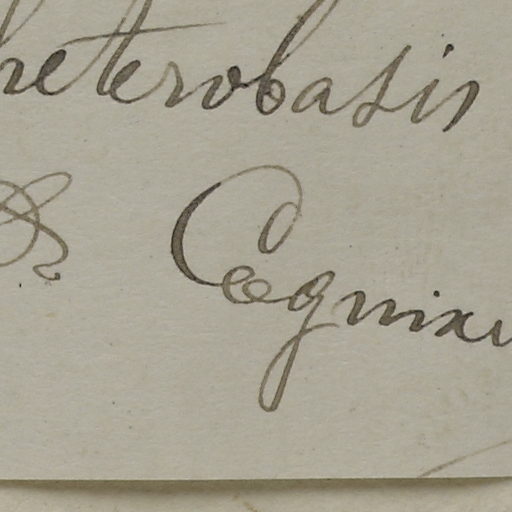 heterobasis
Cogniau